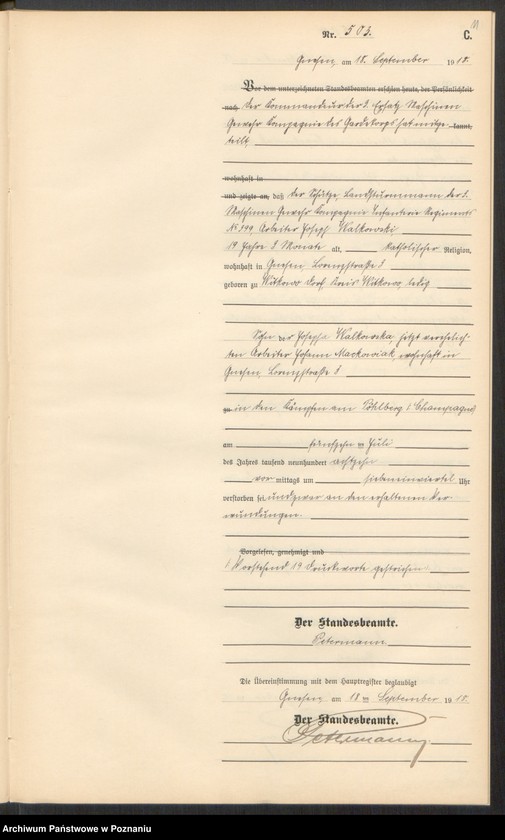 11
Nr. 503. C.
Gnesen am 18. September 1918.
Vor dem unterzeichneten Standesbeamten erschien heute, der Persönlichkeit
nach Der Kommandeur der 3. Ersatz Maschinen
Gewehr Kompagnie des Gardekorps hat mitge- kannt,
teilt
wohnhaft in
und zeigte an, daß der Schütze, Landsturmmann der 3.
Maschinen Gewehr Kompagnie Infanterie Regiments
Arbeiter Joseph Walkowski
19 Jahre 3 Monate alt, katholischer Religion,
wohnhaft in Gnesen,
geboren zu Witkowo Dorf, Kreis Witkowo, ledig
Sohn der Josepha Walkowska, jetzt verehelich-
ten Arbeiter Johann Mackowiak, wohnhaft in
Gnesen,
zu in den Kämpfen am Pöhlberg (Champagne)
am fünfzehn ten Juli
des Jahres tausend neunhundert achtzehn
vor mittags um siebeneinviertel Uhr
verstorben sei und zwar an den erhaltenen Ver-
wundungen.
Vorgelesen, genehmigt und
Vorstehend 19 Druckworte gestrichen
Der Standesbeamte.
Petermann
Die Übereinstimmung mit dem Hauptregister beglaubigt
Gnesen am 18 ten September 1918.
Der Standesbeamte.
Petermann
Archiwum Państwowe w Poznaniu